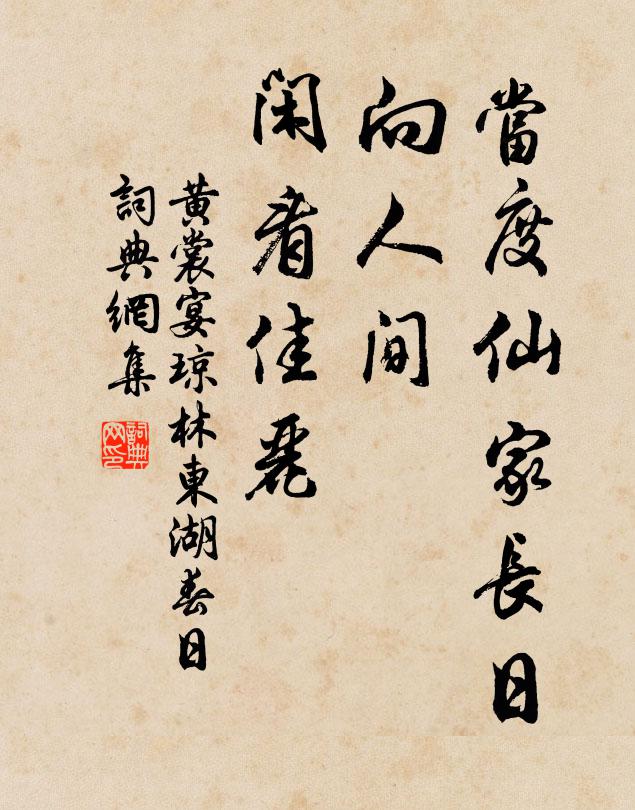 當度仙家長日
向人間
閑看佳麗
黃裳宴琼林東湖春日
詞典網集
詞典网印